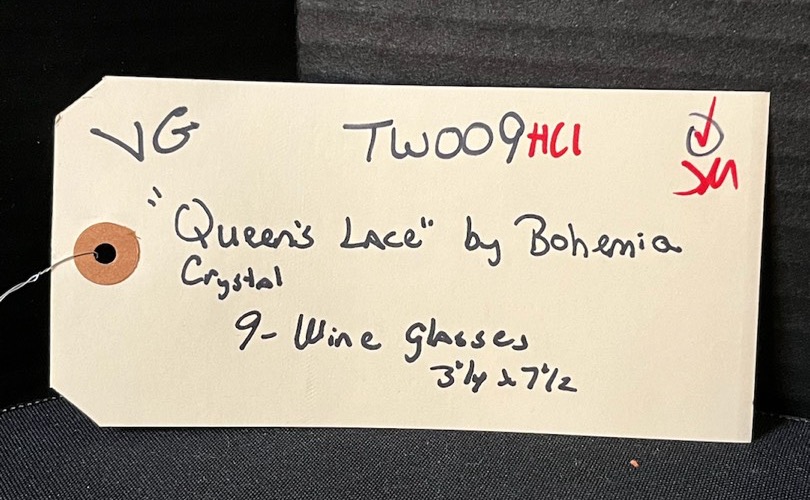 VG TW009HC1
"Queen's Lace" by Bohemia
Crystal
9- Wine glasses
3 1/4 x 7 1/2